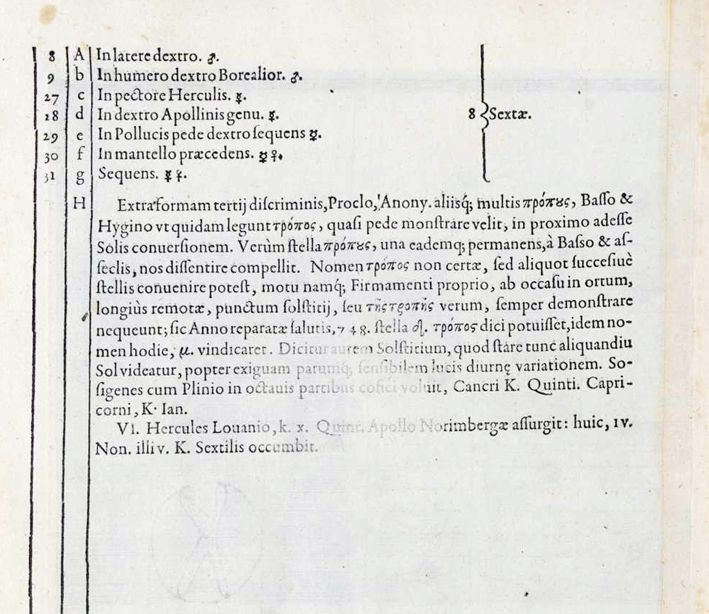 8 A In latere dextro. ♂.
9 b In humero dextro Borealior. ♂.
27 c In pectore Herculis. ☿.
28 d In dextro Apollinis genu. ☿.
29 e In Pollucis pede dextro ſequens ☿.
30 f In mantello præcedens. ☿ ♀.
31 g Sequens. ☿ ♀.
8 Sextæ.
H Extra formam tertij diſcriminis, Proclo, Anony. aliisq; multis πρόπȣς, Baſſo &
Hygino vt quidam legunt τρόπος, quaſi pede monſtrare velit, in proximo adeſſe
Solis conuerſionem. Verùm ſtella πρόπȣς, una eademq; permanens, à Baſso & aſ-
ſeclis, nos diſſentire compellit. Nomen τρόπος non certæ, ſed aliquot ſucceſiuè
ſtellis conuenire poteſt, motu namq; Firmamenti proprio, ab occaſu in ortum,
longiùs remotæ, punctum ſolſtitij, ſeu τῆς τροπῆς verum, ſemper demonſtrare
nequeunt; ſic Anno reparatæ ſalutis, 748. ſtella τρόπος dici potuiſſet, idem no-
men hodie, μ. vindicaret. Dicitur autem Solſtitium, quod ſtare tunc aliquandiu
Sol videatur, popter exiguam parumq; ſenſibilem lucis diurnę variationem. So-
ſigenes cum Plinio in octauis partibus cofici voluit, Cancri K. Quinti. Capri-
corni, K. Ian.
VI. Hercules Louanio, k. x. Quint. Apollo Norimbergæ aſſurgit: huic, IV.
Non. illi v. K. Sextilis occumbit.